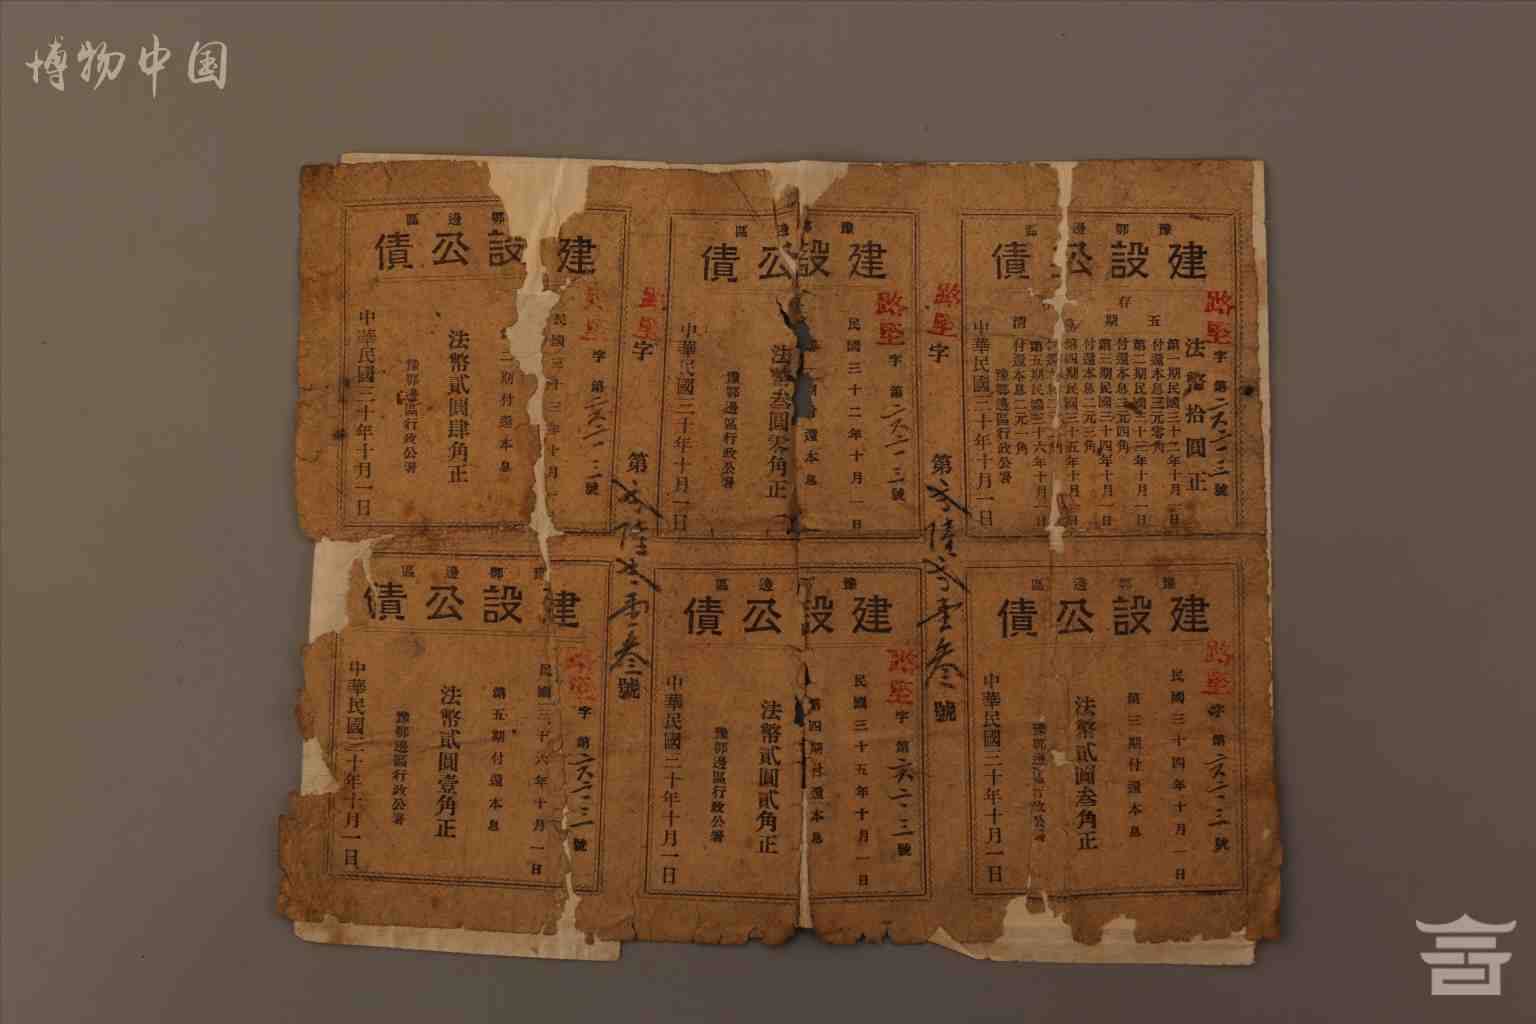 博物中国
豫鄂邊區
建設公債
路堊字第六二一三號
法幣拾圓正
五期存清
第一期民國三十二年十月一日
付還本息三元零角
第二期民國三十三年十月一日
付還本息二元四角
第三期民國三十四年十月一日
付還本息二元三角
第四期民國三十五年十月一日
第五期民國三十六年十月一日
付還本息二元一角
豫鄂邊區行政公署
中華民國三十年十月一日
字
第號
邊區
建設公債
字第號
民國三十二年十月一日
還本息
法幣叁圓零角正
豫鄂邊區行政公署
中華民國三十年十月一日
字
第號
鄂邊區
建設公債
字第號
民國三十三年十月一
第二期付還本息
法幣貳圓肆角正
豫鄂邊區行政公署
中華民國三十年十月一日
豫鄂邊區
建設公債
字第號
民國三十四年十月一日
第三期付還本息
法幣貳圓叁角正
豫鄂邊區行政公署
中華民國三十年十月一日
豫鄂邊區
建設公債
字第號
民國三十五年十月一日
第四期付還本息
法幣貳圓貳角正
豫鄂邊區行政公署
中華民國三十年十月一日
豫鄂邊區
建設公債
字第號
民國三十六年十月一日
第五期付還本息
法幣貳圓壹角正
豫鄂邊區行政公署
中華民國三十年十月一日